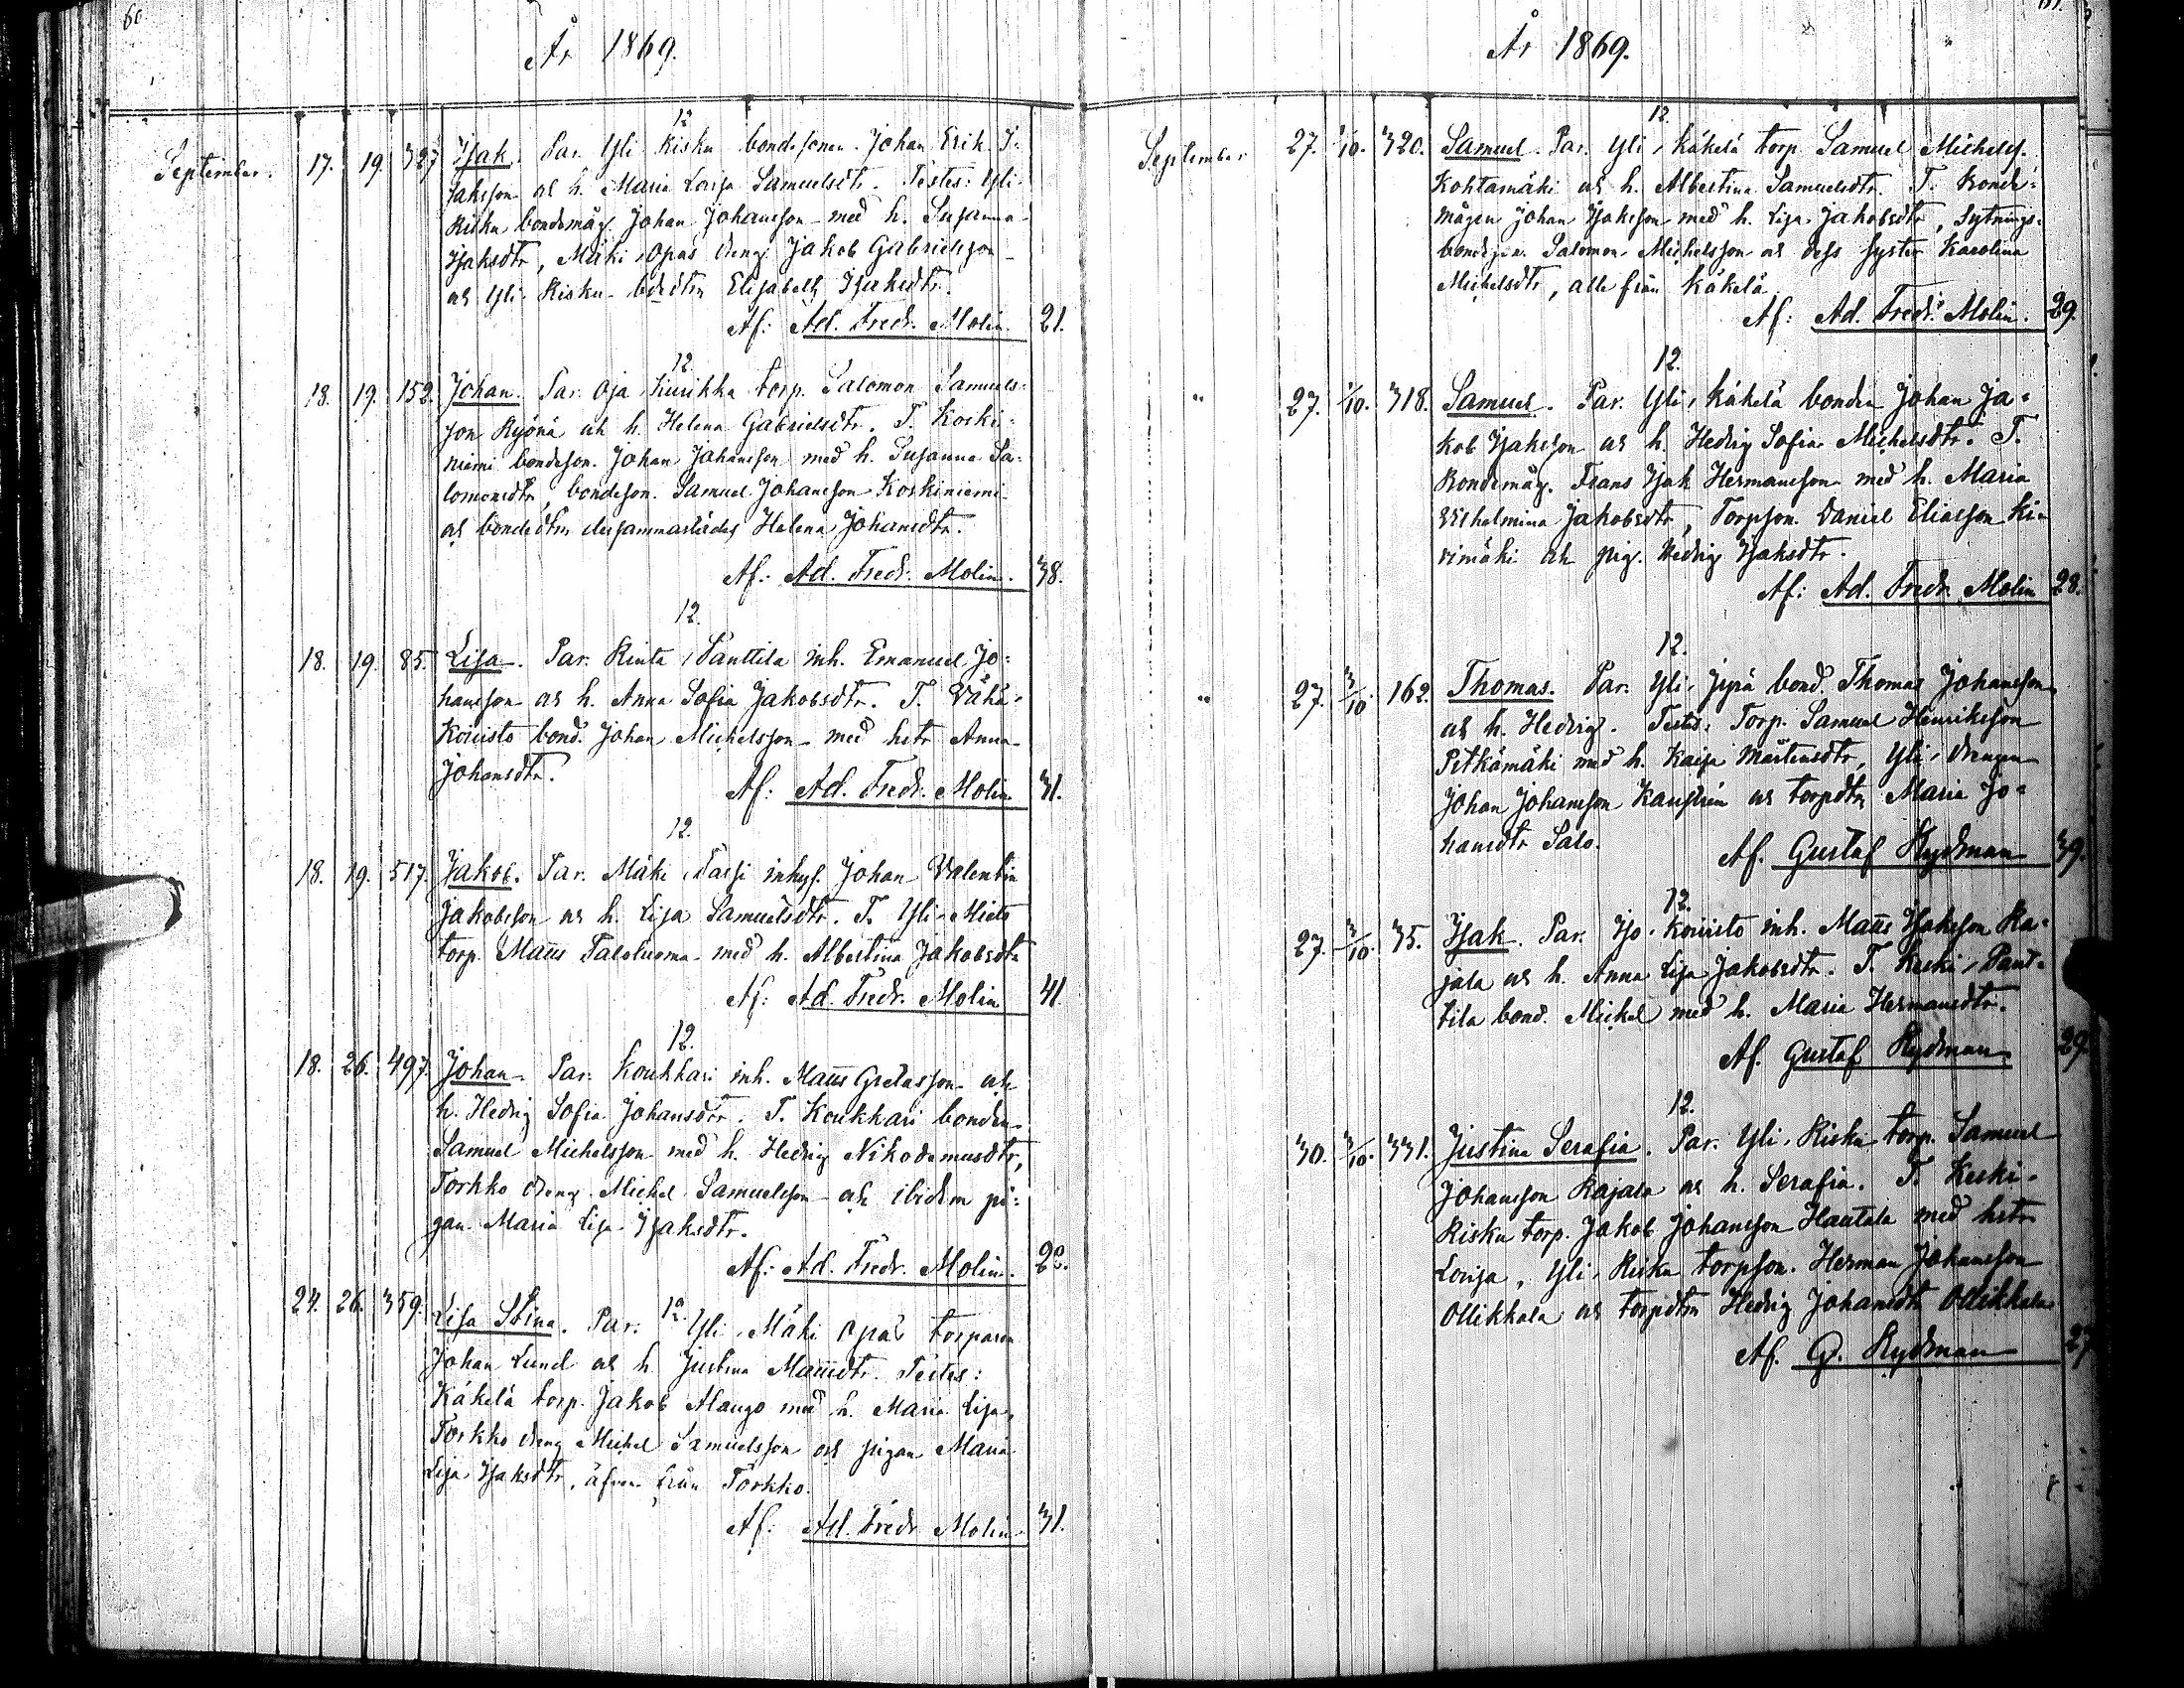 60
År 1869.
12
September. 17. 19. 327 Isak. Par. Yli Risku bondesonen Johan Erik I-
saksson och h. Maria Lovisa Samuelsdtr. Testes: Yli
Risku bondemåg Johan Johansson med h. Susanna
Isaksdtr, Mäki Opas dreng Jakob Gabrielsson
och Yli Risku bdedtrn Elisabeth Isaksdtr.
Af: Ad. Fredr. Molin. 21.
12
18. 19. 152. Johan. Par. Oja Kurikka torp. Salomon Samuels-
son Ryönä och h. Helena Gabrielsdtr. T. Koski-
niemi bondeson. Johan Johansson med h. Susanna Sa-
lomonsdtr, bondeson. Samuel Johansson Koskiniemi
och bondedtrn dersammastädes Helena Johansdtr.
Af: Ad. Fredr. Molin. 38.
12.
18. 19. 85. Lisa. Par. Rinta Panttila inh. Emanuel Jo-
hansson och h. Anna Sofia Jakobsdtr. T. Vähä-
Koivisto bond. Johan Michelsson med hstr Anna
Johansdtr.
Af: Ad. Fredr. Molin 31.
12.
18. 19. 517. Jakob. Par. Mäki Passi inhys. Johan Valentin
Jakobsson och h. Lisa Samuelsdtr. T. Yli-Mieto
torp. Matts Taloluoma med h. Albertina Jakobsdtr
Af: Ad. Fredr. Molin 41.
12.
18. 26. 497. Johan. Par. Koukkari inh. Matts Gretasson och
h. Hedvig Sofia Johansdtr. T. Koukkari bonden
Samuel Michelsson med h. Hedvig Nikodemusdtr,
Torkko dreng Michel Samuelsson och ibidem pi-
gan Maria Lisa Isaksdtr.
Af: Ad. Fredr. Molin. 20.
12
24. 26. 359. Lisa Stina. Par: Yli Mäki Opas torparen
Johan Lund och h. Justina Mattsdtr. Testes:
Käkelä torp. Jakob Alango med h. Maria Lisa,
Torkko dreng Michel Samuelsson och pigan Maria
Lisa Isaksdtr, äfven från Torkko.
Af: Ad. Fredr Molin 31.
År 1869.
12.
September 27. 1/10. 320. Samuel. Par. Yli Käkelä torp Samuel Michelss.
Kohtamäki och h. Albertina Samuelsdtr. T. Bonde-
mågen Johan Isaksson med h. Lisa Jakobsdtr, sytnings-
bondeson. Salomon Michelsson och dess syster Karolina
Michelsdtr, alla från Käkelä.
Af: Ad. Fredr. Molin. 29.
12.
" 27. 1/10. 318. Samuel. Par. Yli Käkelä bonden Johan Ja-
kob Isaksson och h. Hedvig Sofia Michelsdtr. T.
Bondemåg. Frans Isak Hermansson med h. Maria
Vilhelmina Jakobsdtr, Torpson. Daniel Eliasson Ki-
vimäki och pig. Hedvig Isaksdtr.
Af: Ad. Fredr. Molin 28.
12.
" 27. 3/10 162. Thomas. Par. Yli Jyrä bond. Thomas Johansson
och h. Hedvig. Testes: Torp. Samuel Henriksson
Pitkämäki med h. Kaisa Mårtensdtr, Yli drengen
Johan Johansson och torpdtrn Maria Jo-
hansdtr Salo.
Af. Gustaf Rydman 39.
12.
27. 3/10. 35. Isak. Par. Iso Koivisto inh. Matts Isaksson Ra-
jala och h. Anna Lisa Jakobsdtr. T. Keski Pant-
tila bond. Michel med h. Maria Hermansdtr.
Af. Gustaf Rydman 29
12.
30. 3/10. 331. Justina Serafia. Par. Yli Risku torp. Samuel
Johansson Rajala och h. Serafia. T. Keski-
Risku torp. Jakob Johansson Hautala med hstr
Lovisa, Yli Risku torpson. Herman Johansson
Ollikkala och torpdtrn Hedvig Johansdtr Ollikkala
Af. G. Rydman 27